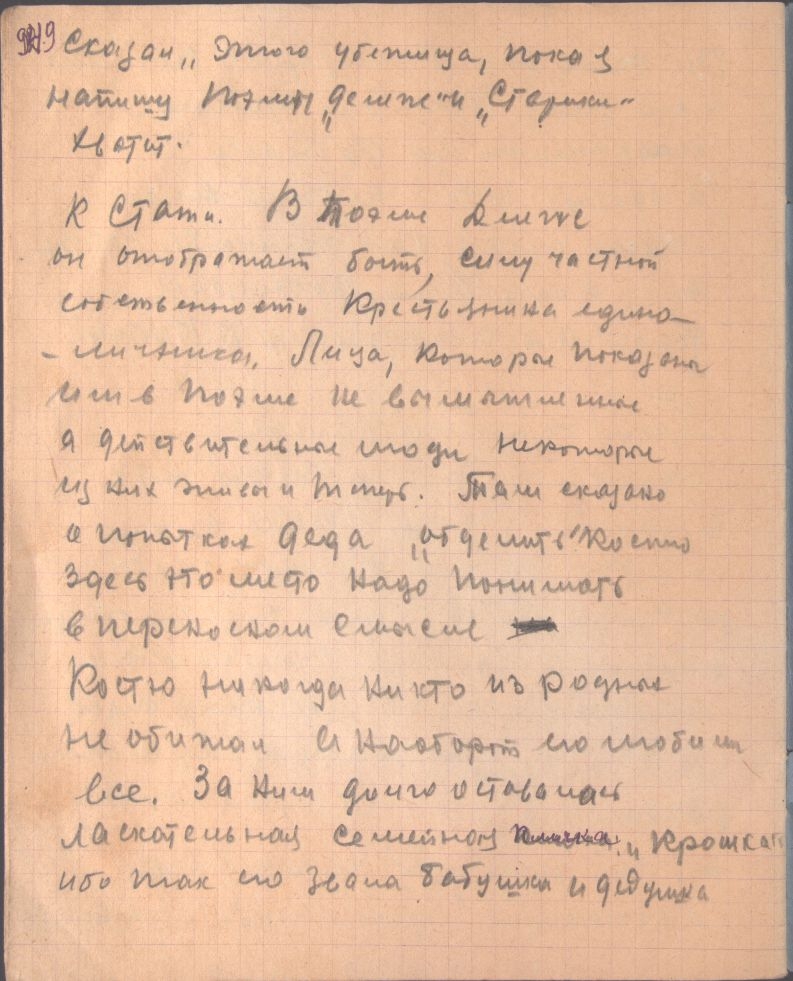 Сказал „ этого убежища, пока я
напишу поэмы „Дележ" и „Старики"
хватит.
К стати. В поэме Дележ
он отображает быть, силу частной
собственность крестьянина едино-
-личника. Лица, которые показаны
им в поэме не вымышленные
а действительные люди некоторые
из них живы и теперь. Там сказано
о попытках деда „отделить" Костю
Здесь это место надо понимать
в переносном смысле
Костю никогда никто из родных
не обижал и наоборот его любили
все. За ним долго оставалась
ласкательная семейная кличка „Крошка"
ибо так его звала бабушка и дедушка